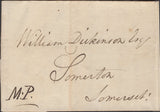 William Dickinson Esq
Somerton
Somerset
M.P.